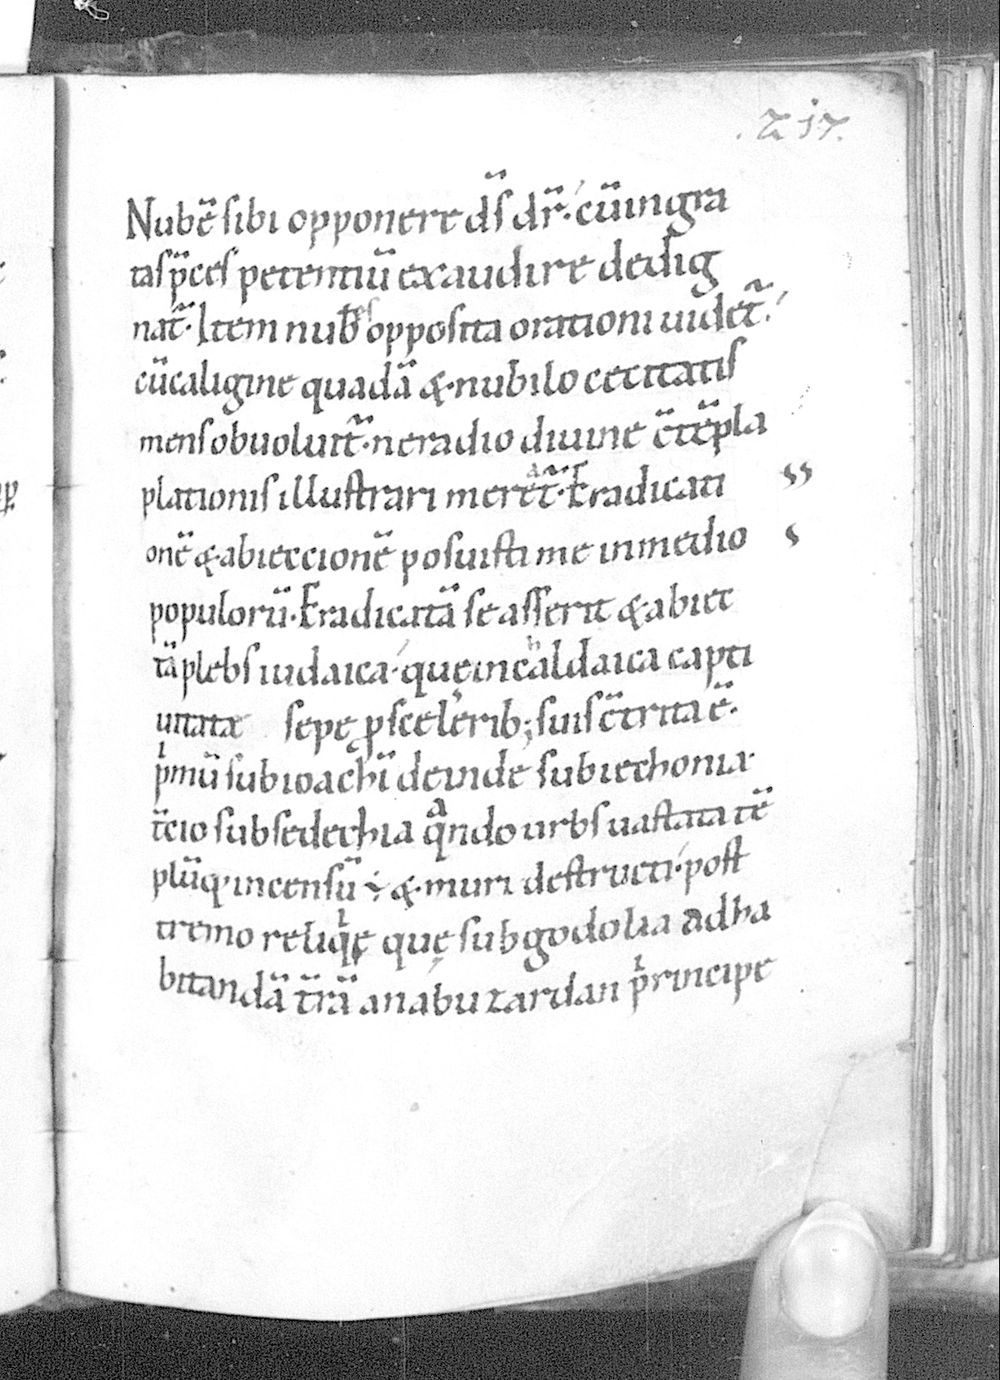 .217.
Nubē sibi opponere d̄s dr̄· cū ingra
tas p̄ces petentiū exaudire dedig
nat᷑· Item nubes opposita orationi uidet᷑·
cū caligine quadā &· nubilo cecitatis
mens obuoluit᷑· ne radio diuine c̄tēpla
plationis illustrari mereat᷑· Eradicati
onē & abieccionē posuisti me in medio
populorū· Eradicatā se asserit & abiec
tā plebs iudaica· quę in chaldaica capti
uitate sepe p sceleribꝫ suis c̄trita ē·
pͥmū sub ioachī deinde sub iechonia·
t̄cio sub sedechia qͣndo urbs uastata tē
plūq· incensū ÷ &· muri destructi· post
tremo reliqͥę quę sub godolia ad ha
bitandā t̄rā a nabuzardan pͥrincipe